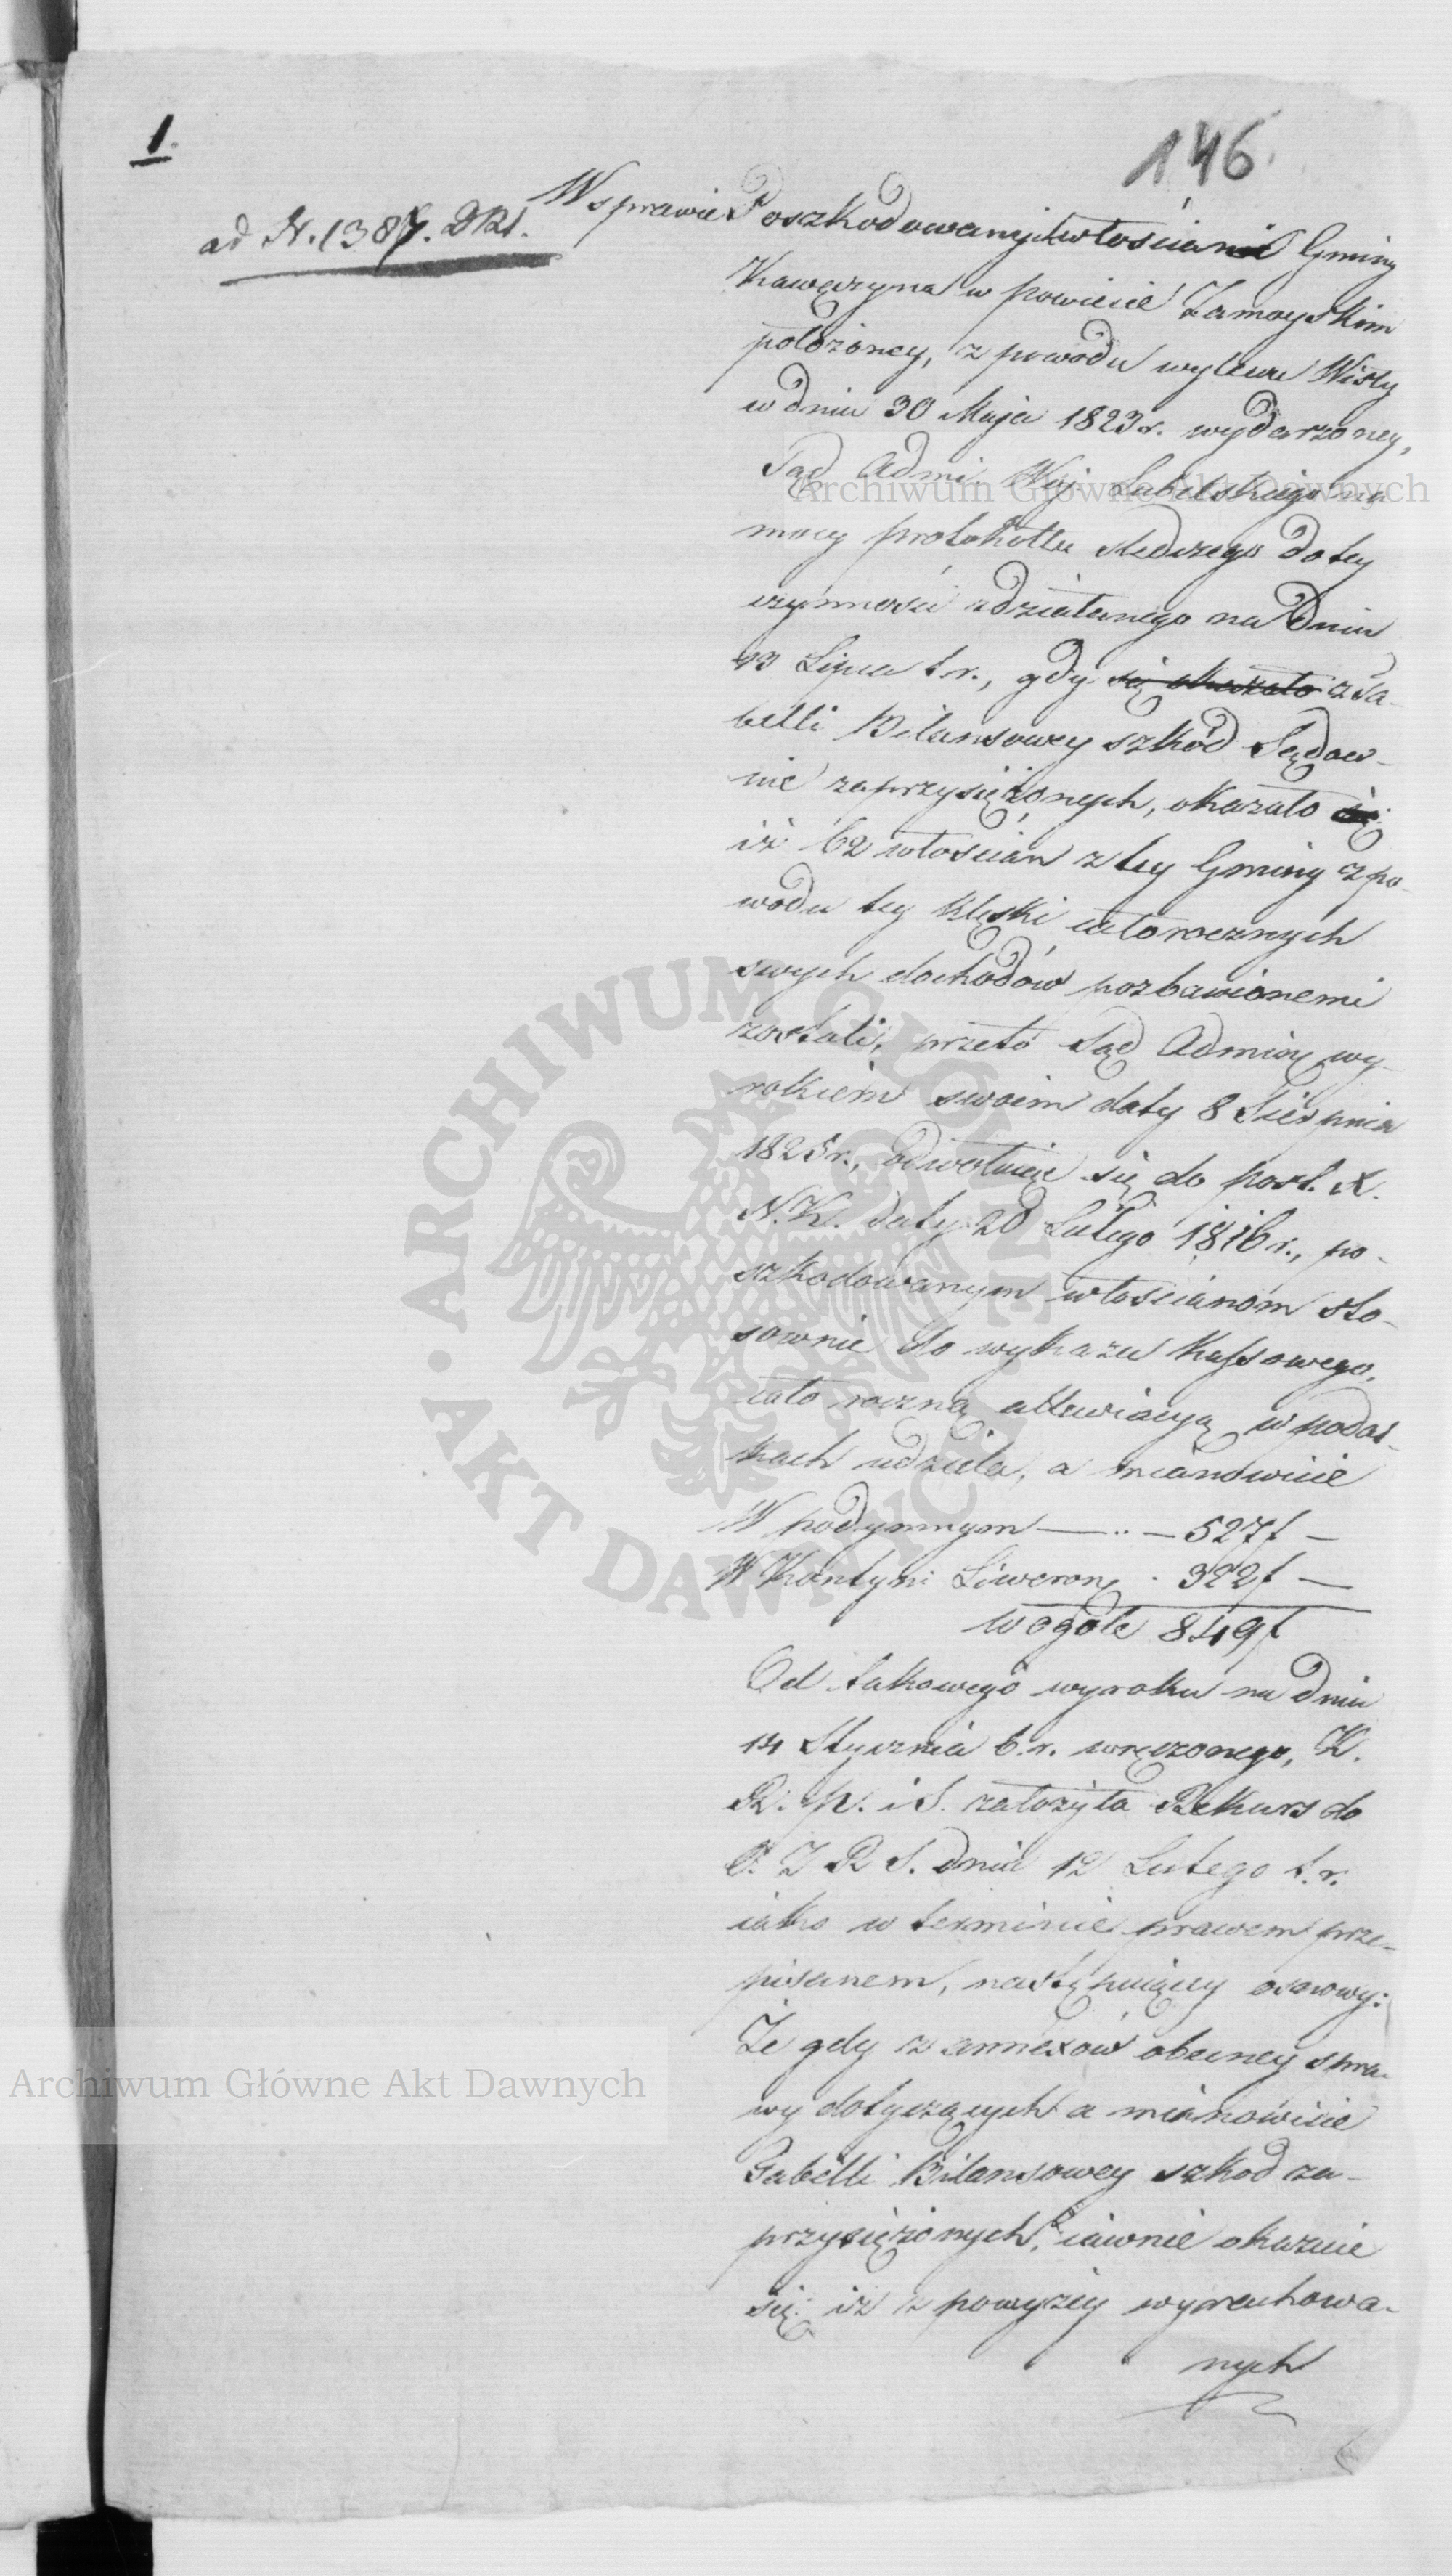 1.
146.
ad N. 1387. DRS.
W sprawie Poszkodowanych włościan Gminy
Kawęczyna w powiecie Zamoyskim
położoney, z powodu wylewu Wisły
w dniu 30 Maja 1823 r. wydarzoney,
Sąd Admi. Woj. Lubelskiego na
mocy protokołłu śledczego do tey
czynności zdziałanego na dniu
13 Lipca t. r., gdy się okazało z Ta-
belli Bilansowey szkód Sądow-
nie zaprzysiężonych, okazało się
iż 62 włościan z tey Gminy z po-
wodu tey klęski całorocznych
swych dochodów pozbawionemi
zostali, przeto Sąd Adminy wy-
rokiem swoim daty 8 Sierpnia
1825 r., odwołuiąc się do post. X.
N. K. daty 20 Lutego 1816 r., po-
szkodowanym włościanom sto-
sownie do wykazu Kassowego,
cało roczną allewiacyą w podat-
kach udziela, a mianowicie
W podymnym — .. — 527 f —
W Kontyn: Liweron. . 322 f —
w ogóle 849 f
Od takowego wyroku na dniu
14 Stycznia b. r. wręczonego, K.
R. P. i S. założyła Rekurs do
D. Z R S. dnia 12 Lutego t. r.
iako w terminie prawem prze-
pisanem, następuiący osnowy:
Że gdy z annexów obecney spra-
wy dotyczących a mianowicie
Tabelli Bilansowey szkod za-
przysiężonych, iawnie okazuie
się iż z powyżey wyrachowa-
nych
Archiwum Główne Akt Dawnych
ARCHIWUM GŁÓWNE • AKT DAWNYCH •
Archiwum Główne Akt Dawnych